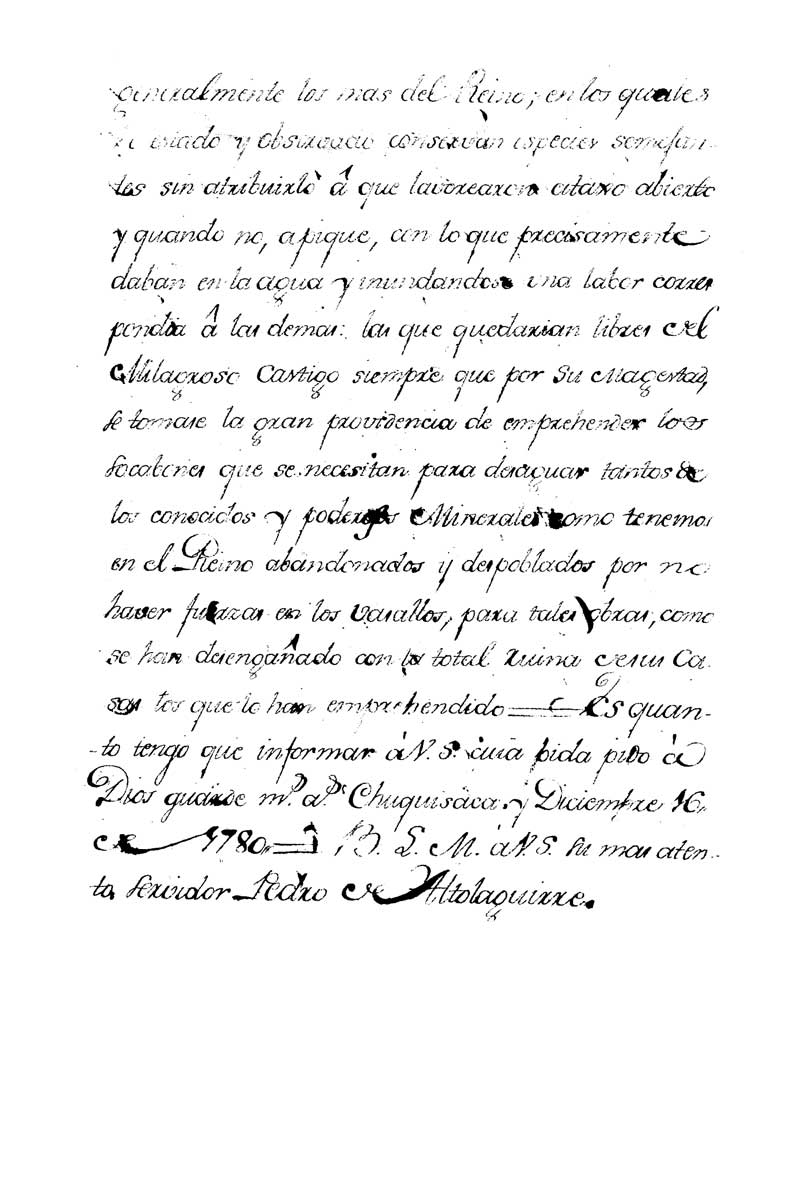 generalmente los mas del Reino; en los quales
estado y Observado conservan especies semejan-
tes sin atribuirlo â que lavorearon ataxo abierto
y quando no, apique, con lo que precisamente
daban en la agua y inundandose una labor corres
pondia â las demas: las que quedarian libres del
Milagroso Castigo siempre que por Su Magestad,
se tomase la gran providencia de emprehender los
socabones que se necesitan para desaguar tantos de
los conocidos y poderosos Minerales como tenemos
en el Reino abandonados y despoblados por no
haver fuerzas en los Vasallos, para tales obras, como
se han desengañado con la total ruina de sus Ca
sas los que lo han emprehendido == Es quan-
-to tengo que informar à V. S. cuia bida pido à
Dios guarde m.ˢ a.ˢ Chuquisaca y Diciembre 16,
de 1780 == B. L. M. à V. S. su mas aten-
to servidor Pedro de Altolaguirre.